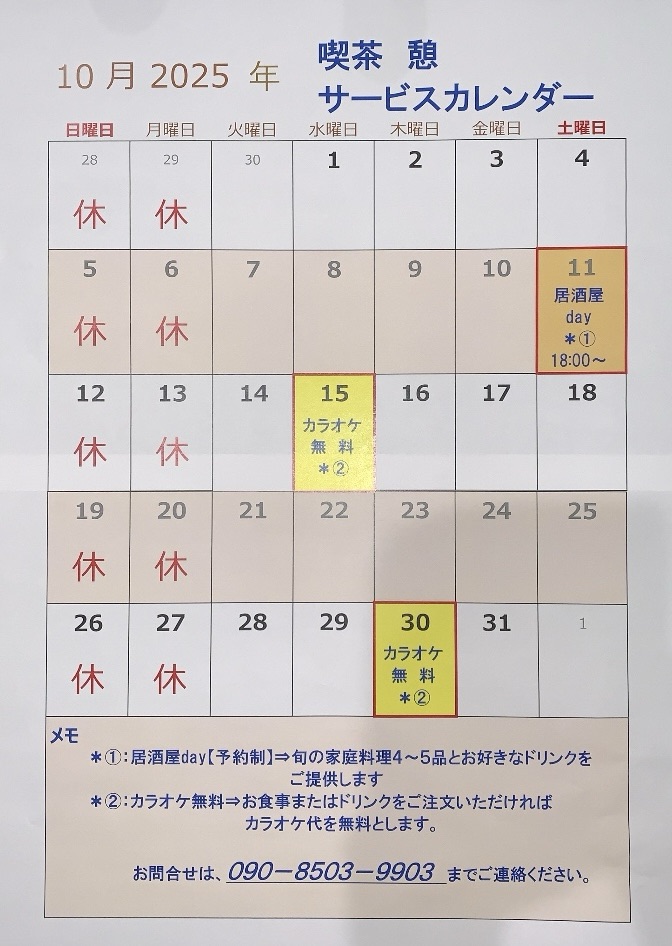 10 月 2025 年
喫茶 憩
サービスカレンダー
日曜日 月曜日 火曜日 水曜日 木曜日 金曜日 土曜日
28 29 30 1 2 3 4
休 休
5 6 7 8 9 10 11
休 休
居酒屋
day
＊①
18:00～
12 13 14 15 16 17 18
休 休
カラオケ
無 料
＊②
19 20 21 22 23 24 25
休 休
26 27 28 29 30 31 1
休 休
カラオケ
無 料
＊②
メモ
＊①：居酒屋day【予約制】⇒旬の家庭料理4～5品とお好きなドリンクを
ご提供します
＊②：カラオケ無料⇒お食事またはドリンクをご注文いただければ
カラオケ代を無料とします。
お問合せは、090－8503－9903 までご連絡ください。